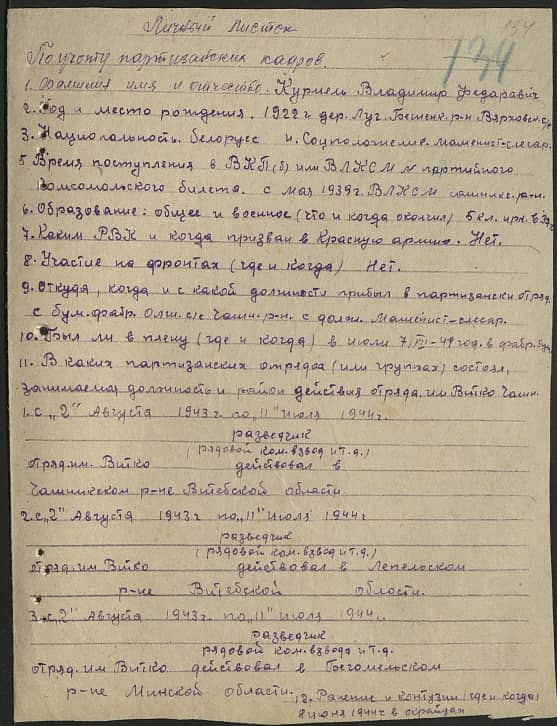 Личный листок
134
134
По учоту партизанских кадров.
1. Фамилия имя и отчество. Курмель Владимир Федаравич
2. Год и место рождения. 1922 г дер. Луг. Бешенк. р-н Вярховск. с/с
3. Национальность. белорусс 4. Соцположение. маменист-слесар.
5 Время поступления в ВКП(б) или ВЛКСМ № партийного
Комсомольского билета. с мая 1939 г. ВЛКСМ р-н.
6. Образование: общее и военное (что и когда окончил) 5 кл.
7. Каким РВК и когда призван в Красную армию. Нет.
8. Участие на фронтах (где и когда) Нет.
9. Откуда, когда и с какой должности прибыл в партизански отряд.
с бум. фабр. с/с Чашн. р-н. с долж. Маменист-слесар.
10. Был ли в плену (где и когда) в июли в фабр.
11. В каких партизанских отрядах (или группах) состоял,
занимаемая должность и район действия отряда. им Витко Чашн.
1. с „2" Августа 1943 г. по „11" июля 1944 г.
разведчик
(рядовой ком. взвод и т.д.)
отряд. им. Витко действовал в
Чашникском р-не Витебской области
2. с „2" Августа 1943 г по „11" июля 1944 г
разведчик
(рядовой ком. взвод и т.д.)
отряд. им Витко действовал в Лепельском
р-не Витебской области.
3. с „2" Августа 1943 г. по „11" июля 1944 г.
разведчик
рядовой ком. взвода и т.д.
отряд. им Витко действовал в Бегомельском
р-не Минской области. 12. Ранение и контузии (где и когда)
8 июня 1944 г в